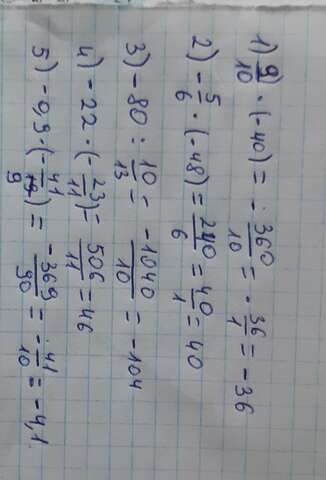 1) 9/10 · (-40) = -360/10 = -36/1 = -36
2) -5/6 · (-48) = 240/6 = 40/1 = 40
3) -80 : 10/13 = -1040/10 = -104
4) -22 · (-23/11) = 506/11 = 46
5) -0,9 · (-41/9) = -369/90 = -41/10 = -4,1